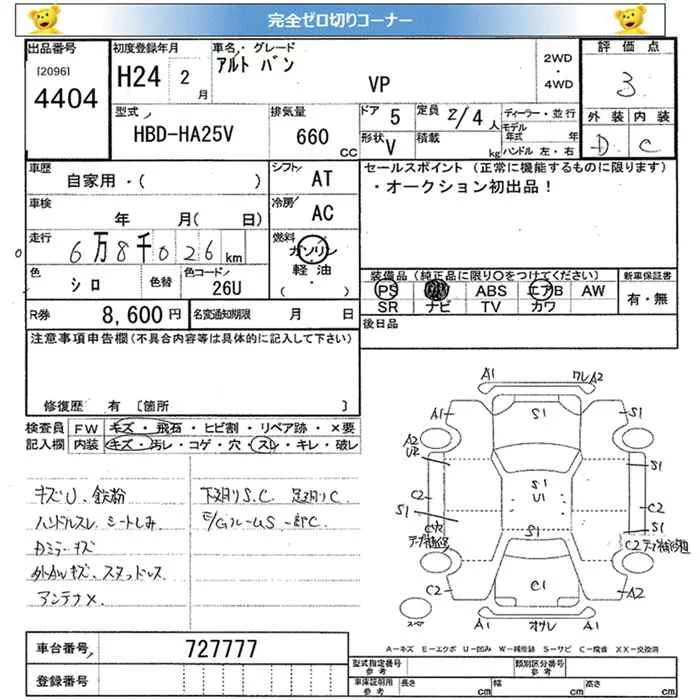 完全ゼロ切りコーナー
出品番号
[2096]
4404
初度登録年月
H24 2月
車名・グレード
アルト バン
VP
2WD・4WD
評価点
3
外装 内装
D C
型式
HBD-HA25V
排気量
660 CC
ドア 5
定員 2/4人
形状 V
積載 kg
ディーラー・並行
モデル年式 年
ハンドル 左・右
車歴
自家用・( )
シフト AT
車検
年 月( 日)
冷房 AC
走行
6万8千026km
燃料
ガソリン
軽油
( )
色
シロ
色替
色コード
26U
R券
8,600円
名変通知期限 月 日
セールスポイント(正常に機能するものに限ります)
・オークション初出品!
装備品(純正品に限り○をつけてください)
PS ABS エアB AW
SR ナビ TV カワ
新車保証書
有・無
後日品
注意事項申告欄(不具合内容等は具体的に記入して下さい)
修復歴 有 [箇所 ]
検査員記入欄
FW キズ・飛石・ヒビ割・リペア跡・×要
内装 キズ・汚レ・コゲ・穴・スレ・キレ・破レ
キズU、鉄粉
ハンドルスレ シートしみ
Dミラーキズ
外AWキズ、スタッドレス
アンテナ×
下廻りS.C 足廻りC
A1 クレA2
A1 S1 S1
A2
S1 S1
C2 U1 C2
S1 S1 S1
C2
C2 C1 A2
スペア A1 オサレ A1
A-キズ E-エクボ U-凹み W-補修跡 S-サビ C-腐食 XX-交換済
車台番号
727777
登録番号
型式指定番号 参考
類別区分番号 参考
車庫証明用 参考
長さ cm 幅 cm 高さ cm